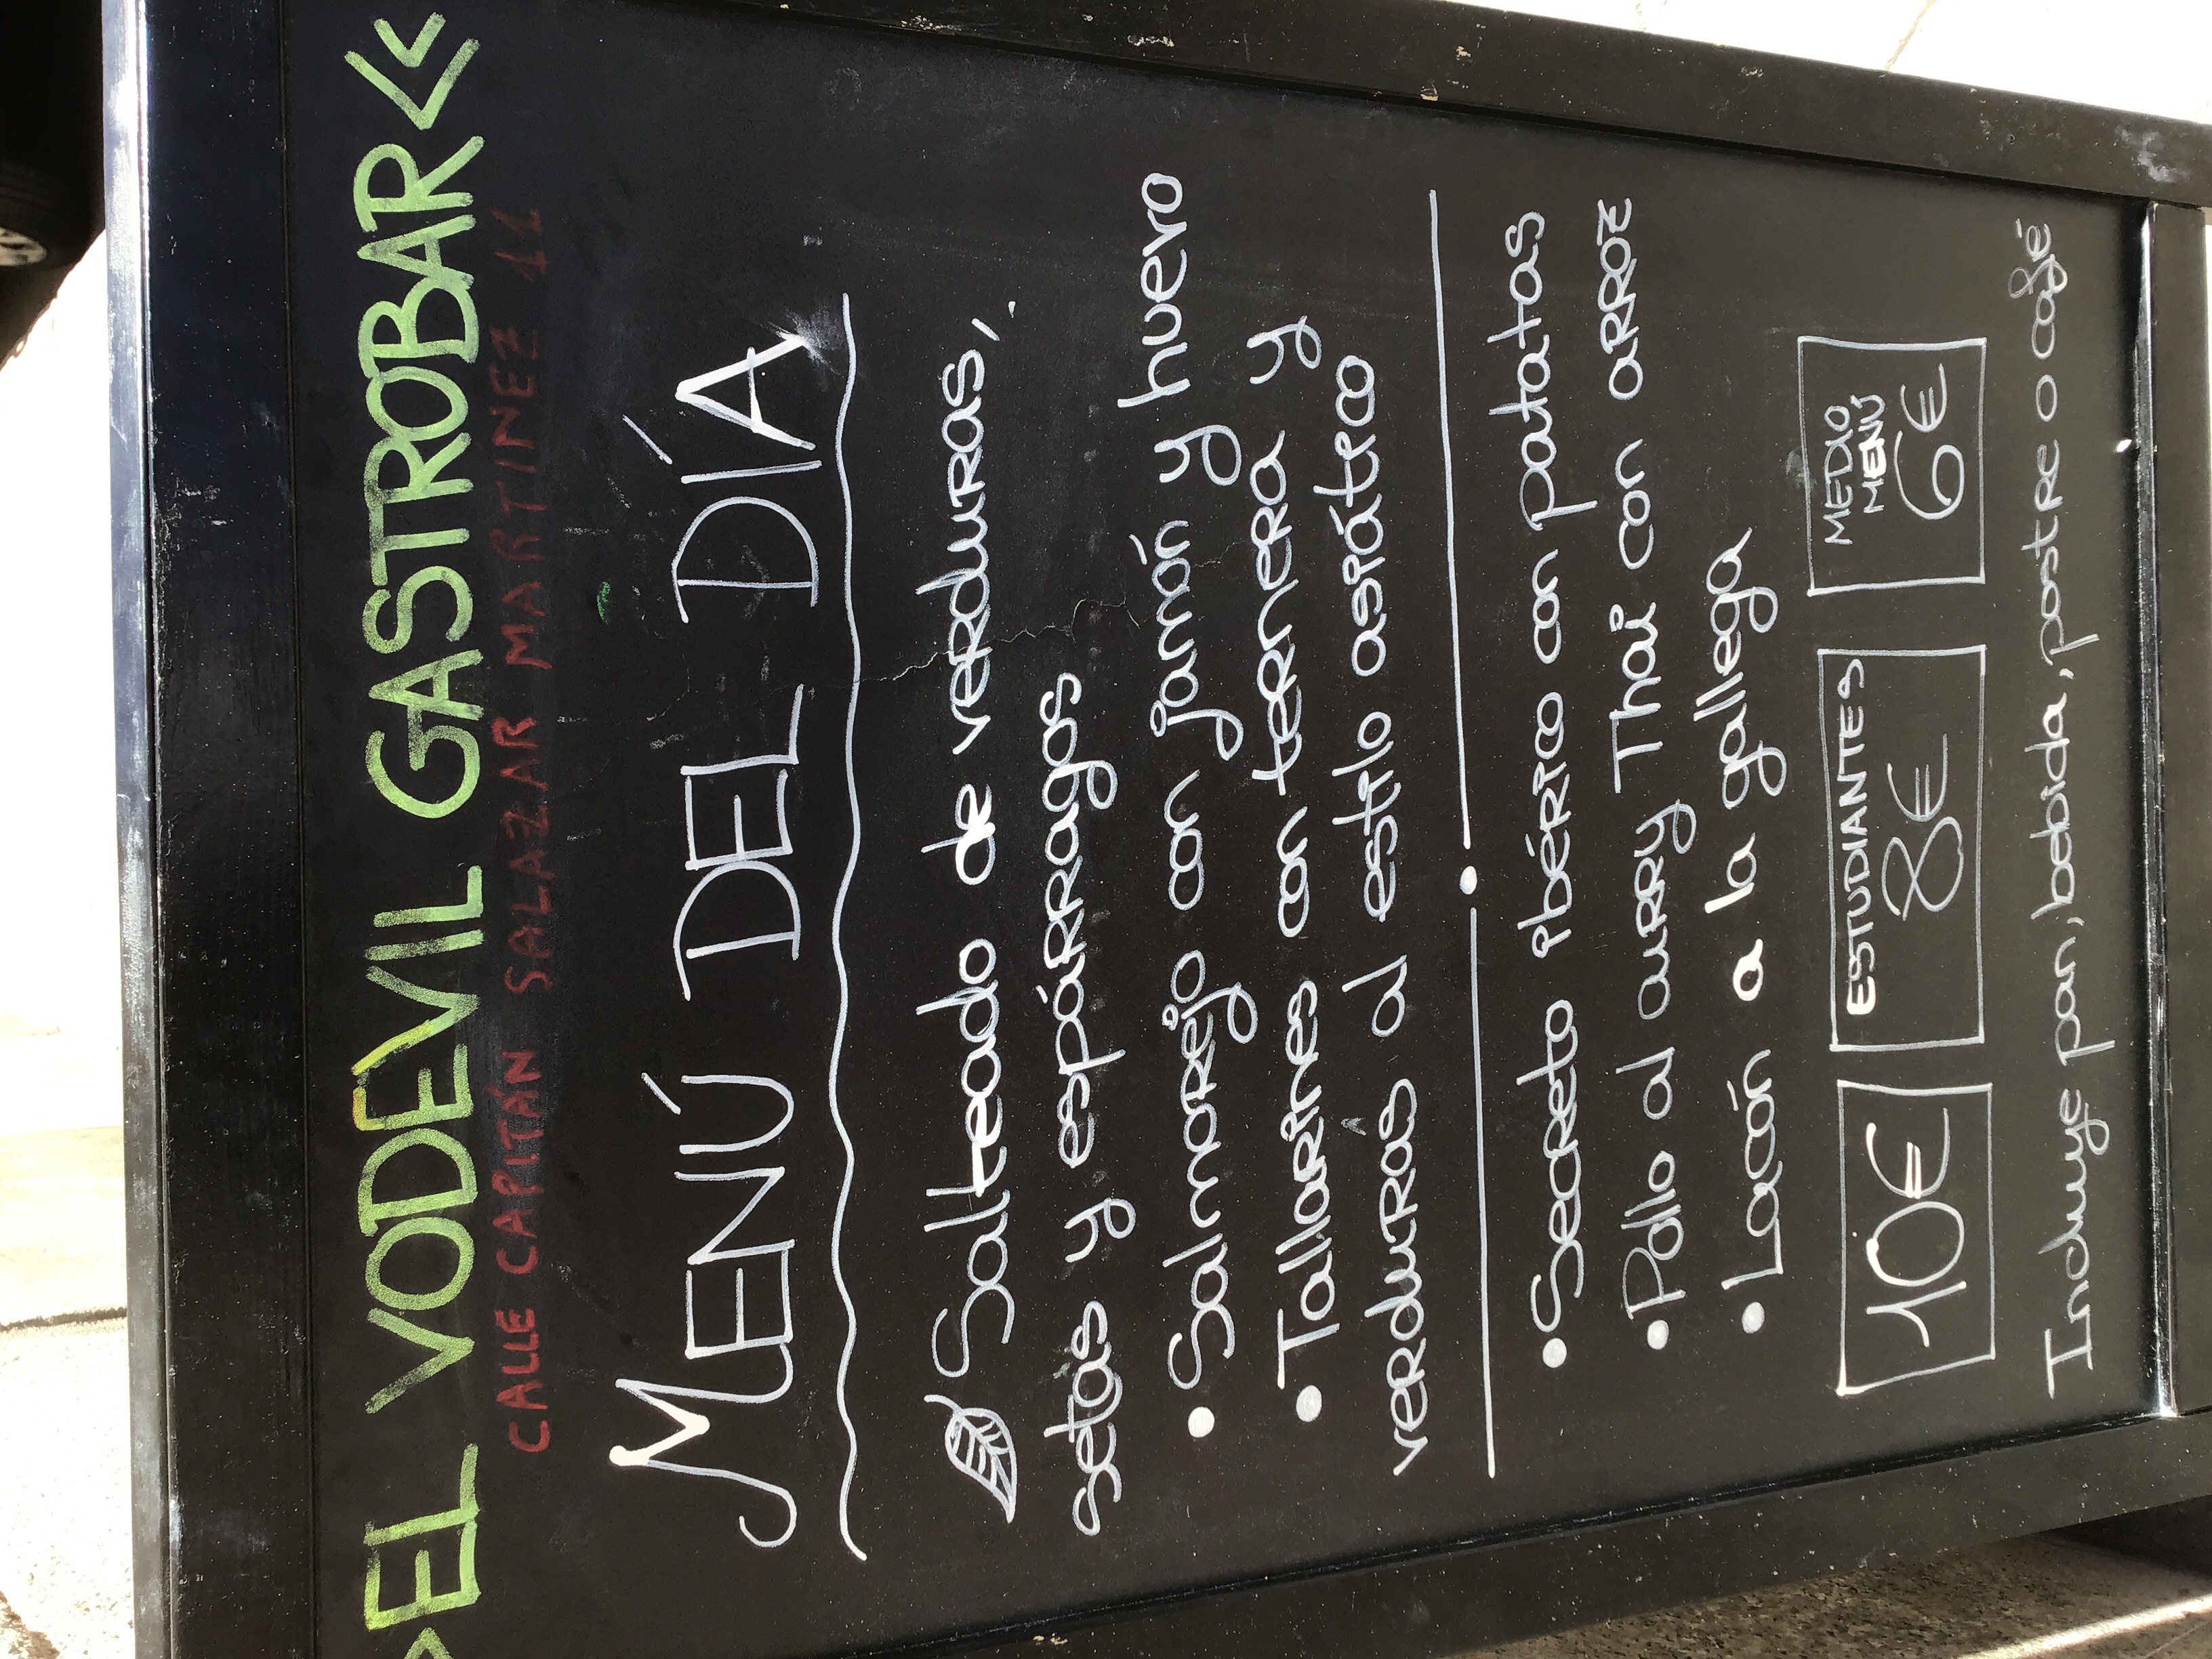 > EL VODEVIL GASTROBAR <<
CALLE CAPITÁN SALAZAR MARTINEZ 11
MENÚ DEL DÍA
Salteado de verduras,
setas y espárragos
• Salmorejo con jamón y huevo
• Tallarines con ternera y
verduras al estilo asiático
• Secreto ibérico con patatas
• Pollo al curry Thai con arroz
• Lacón a la gallega
10€
ESTUDIANTES
8€
MEDIO
MENÚ
6€
Incluye pan, bebida, postre o café